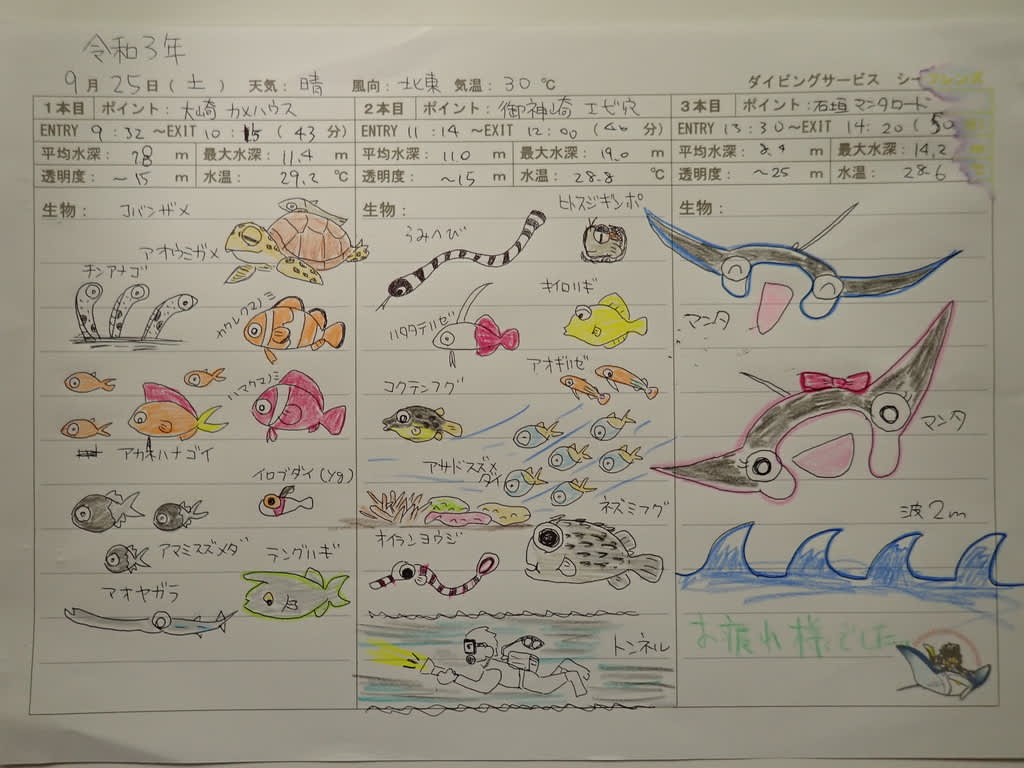 令和3年
9月25日(土) 天気:晴 風向:北東 気温:30℃ ダイビングサービス シーフレンズ
1本目 ポイント:大崎 カメハウス
ENTRY 9:32~EXIT 10:15(43分)
平均水深: m 最大水深:11.4m
透明度:~15m 水温:29.2℃
生物:
コバンザメ
アオウミガメ
チンアナゴ
カクレクマノミ
ハマクマノミ
アカネハナゴイ
イロブダイ(yg)
アマミスズメダ
テングハギ
マオヤガラ
2本目 ポイント:御神崎 エビ穴
ENTRY 11:14~EXIT 12:00(46分)
平均水深:11.0m 最大水深:19.0m
透明度:~15m 水温:28.8℃
生物:
ヒトスジギンポ
うみへび
キイロハギ
ハタタテハゼ
アオギハゼ
コクテンフグ
アサドスズメ
ダイ
ネズミフグ
オイランヨウジ
トンネル
3本目 ポイント:石垣 マンタロード
ENTRY 13:30~EXIT 14:20(50
平均水深: m 最大水深:14.2
透明度:~25m 水温:28.6
生物:
マンタ
マンタ
波2m
お疲れ様でした